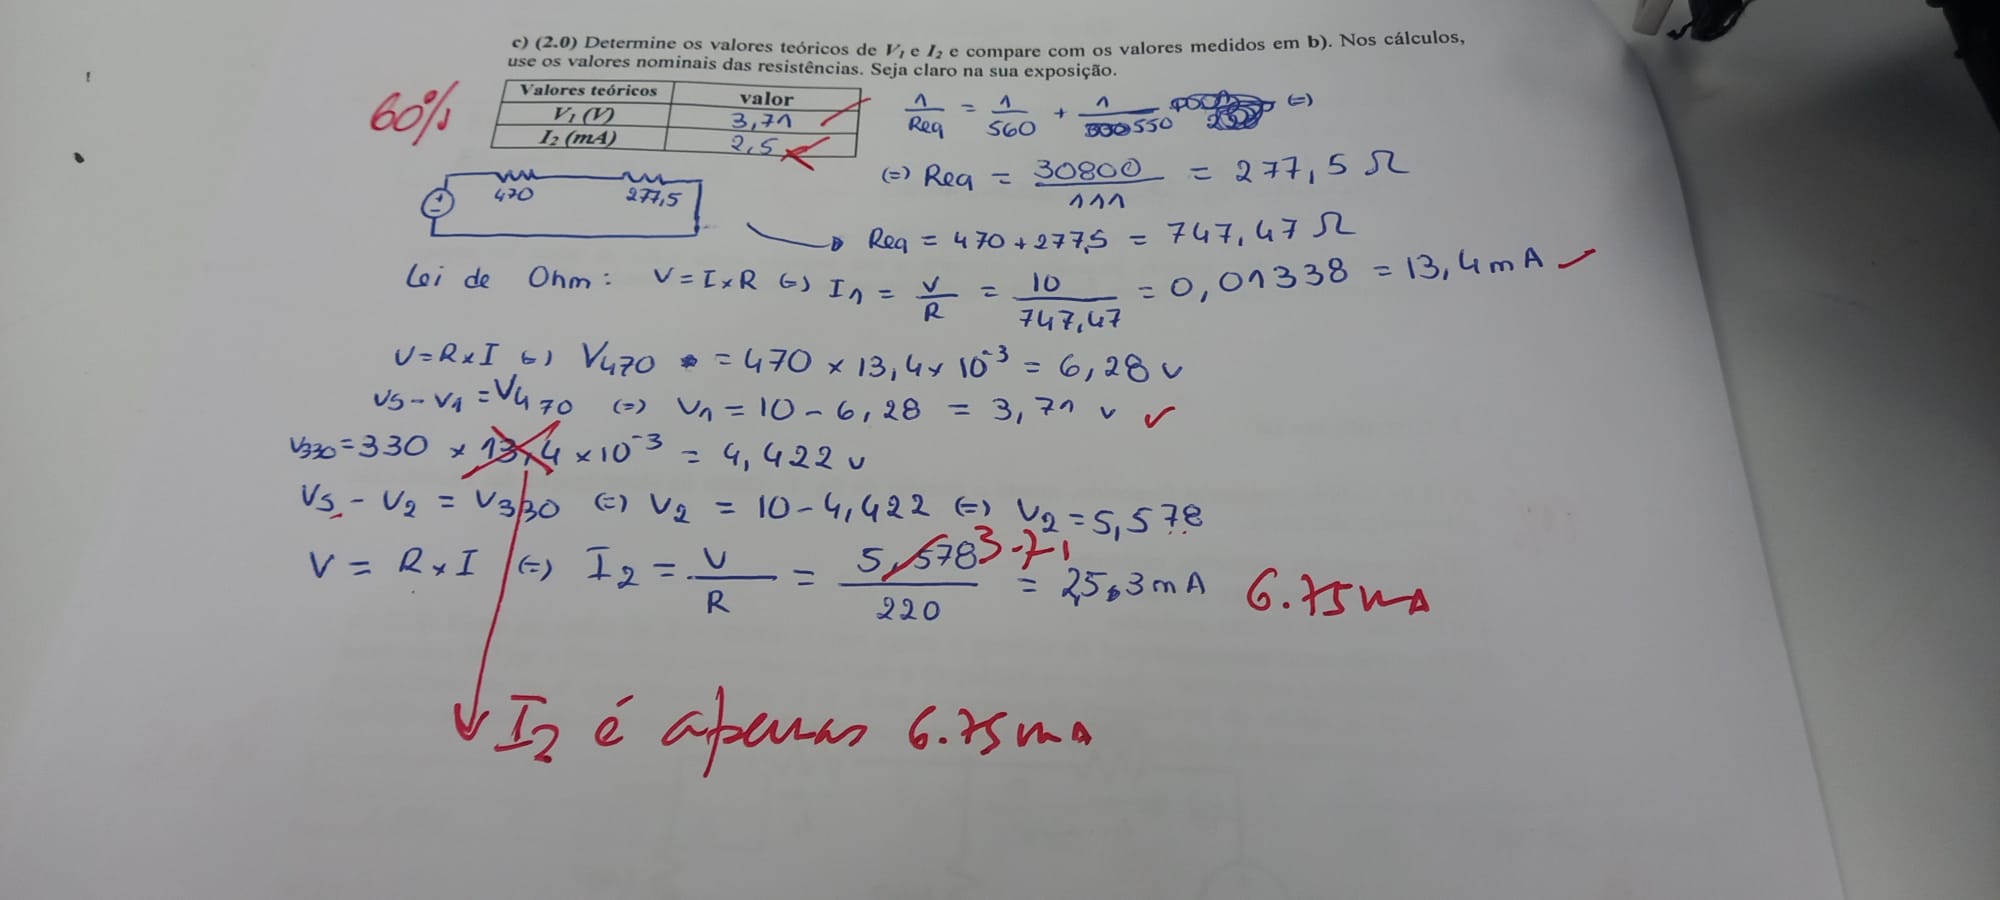 c) (2.0) Determine os valores teóricos de V₁ e I₂ e compare com os valores medidos em b). Nos cálculos,
use os valores nominais das resistências. Seja claro na sua exposição.
60%
Valores teóricos valor
V₁ (V) 3,71
I₂ (mA) 2,5
1/Req = 1/560 + 1/550 (=)
(=) Req = 30800/111 = 277,5 Ω
470 277,5
Req = 470 + 277,5 = 747,47 Ω
Lei de Ohm: V = I x R (=) I₁ = V/R = 10/747,47 = 0,01338 = 13,4 mA
V = R x I (=) V470 = 470 x 13,4 x 10⁻³ = 6,28 v
Vs - V₁ = V470 (=) V₁ = 10 - 6,28 = 3,71 v
V330 = 330 x 13,4 x 10⁻³ = 4,422 v
Vs - V₂ = V330 (=) V₂ = 10 - 4,422 (=) V₂ = 5,578
V = R x I (=) I₂ = V/R = 5,578/220 = 25,3 mA
3.71
6.75 mA
I₂ é apenas 6.75 mA